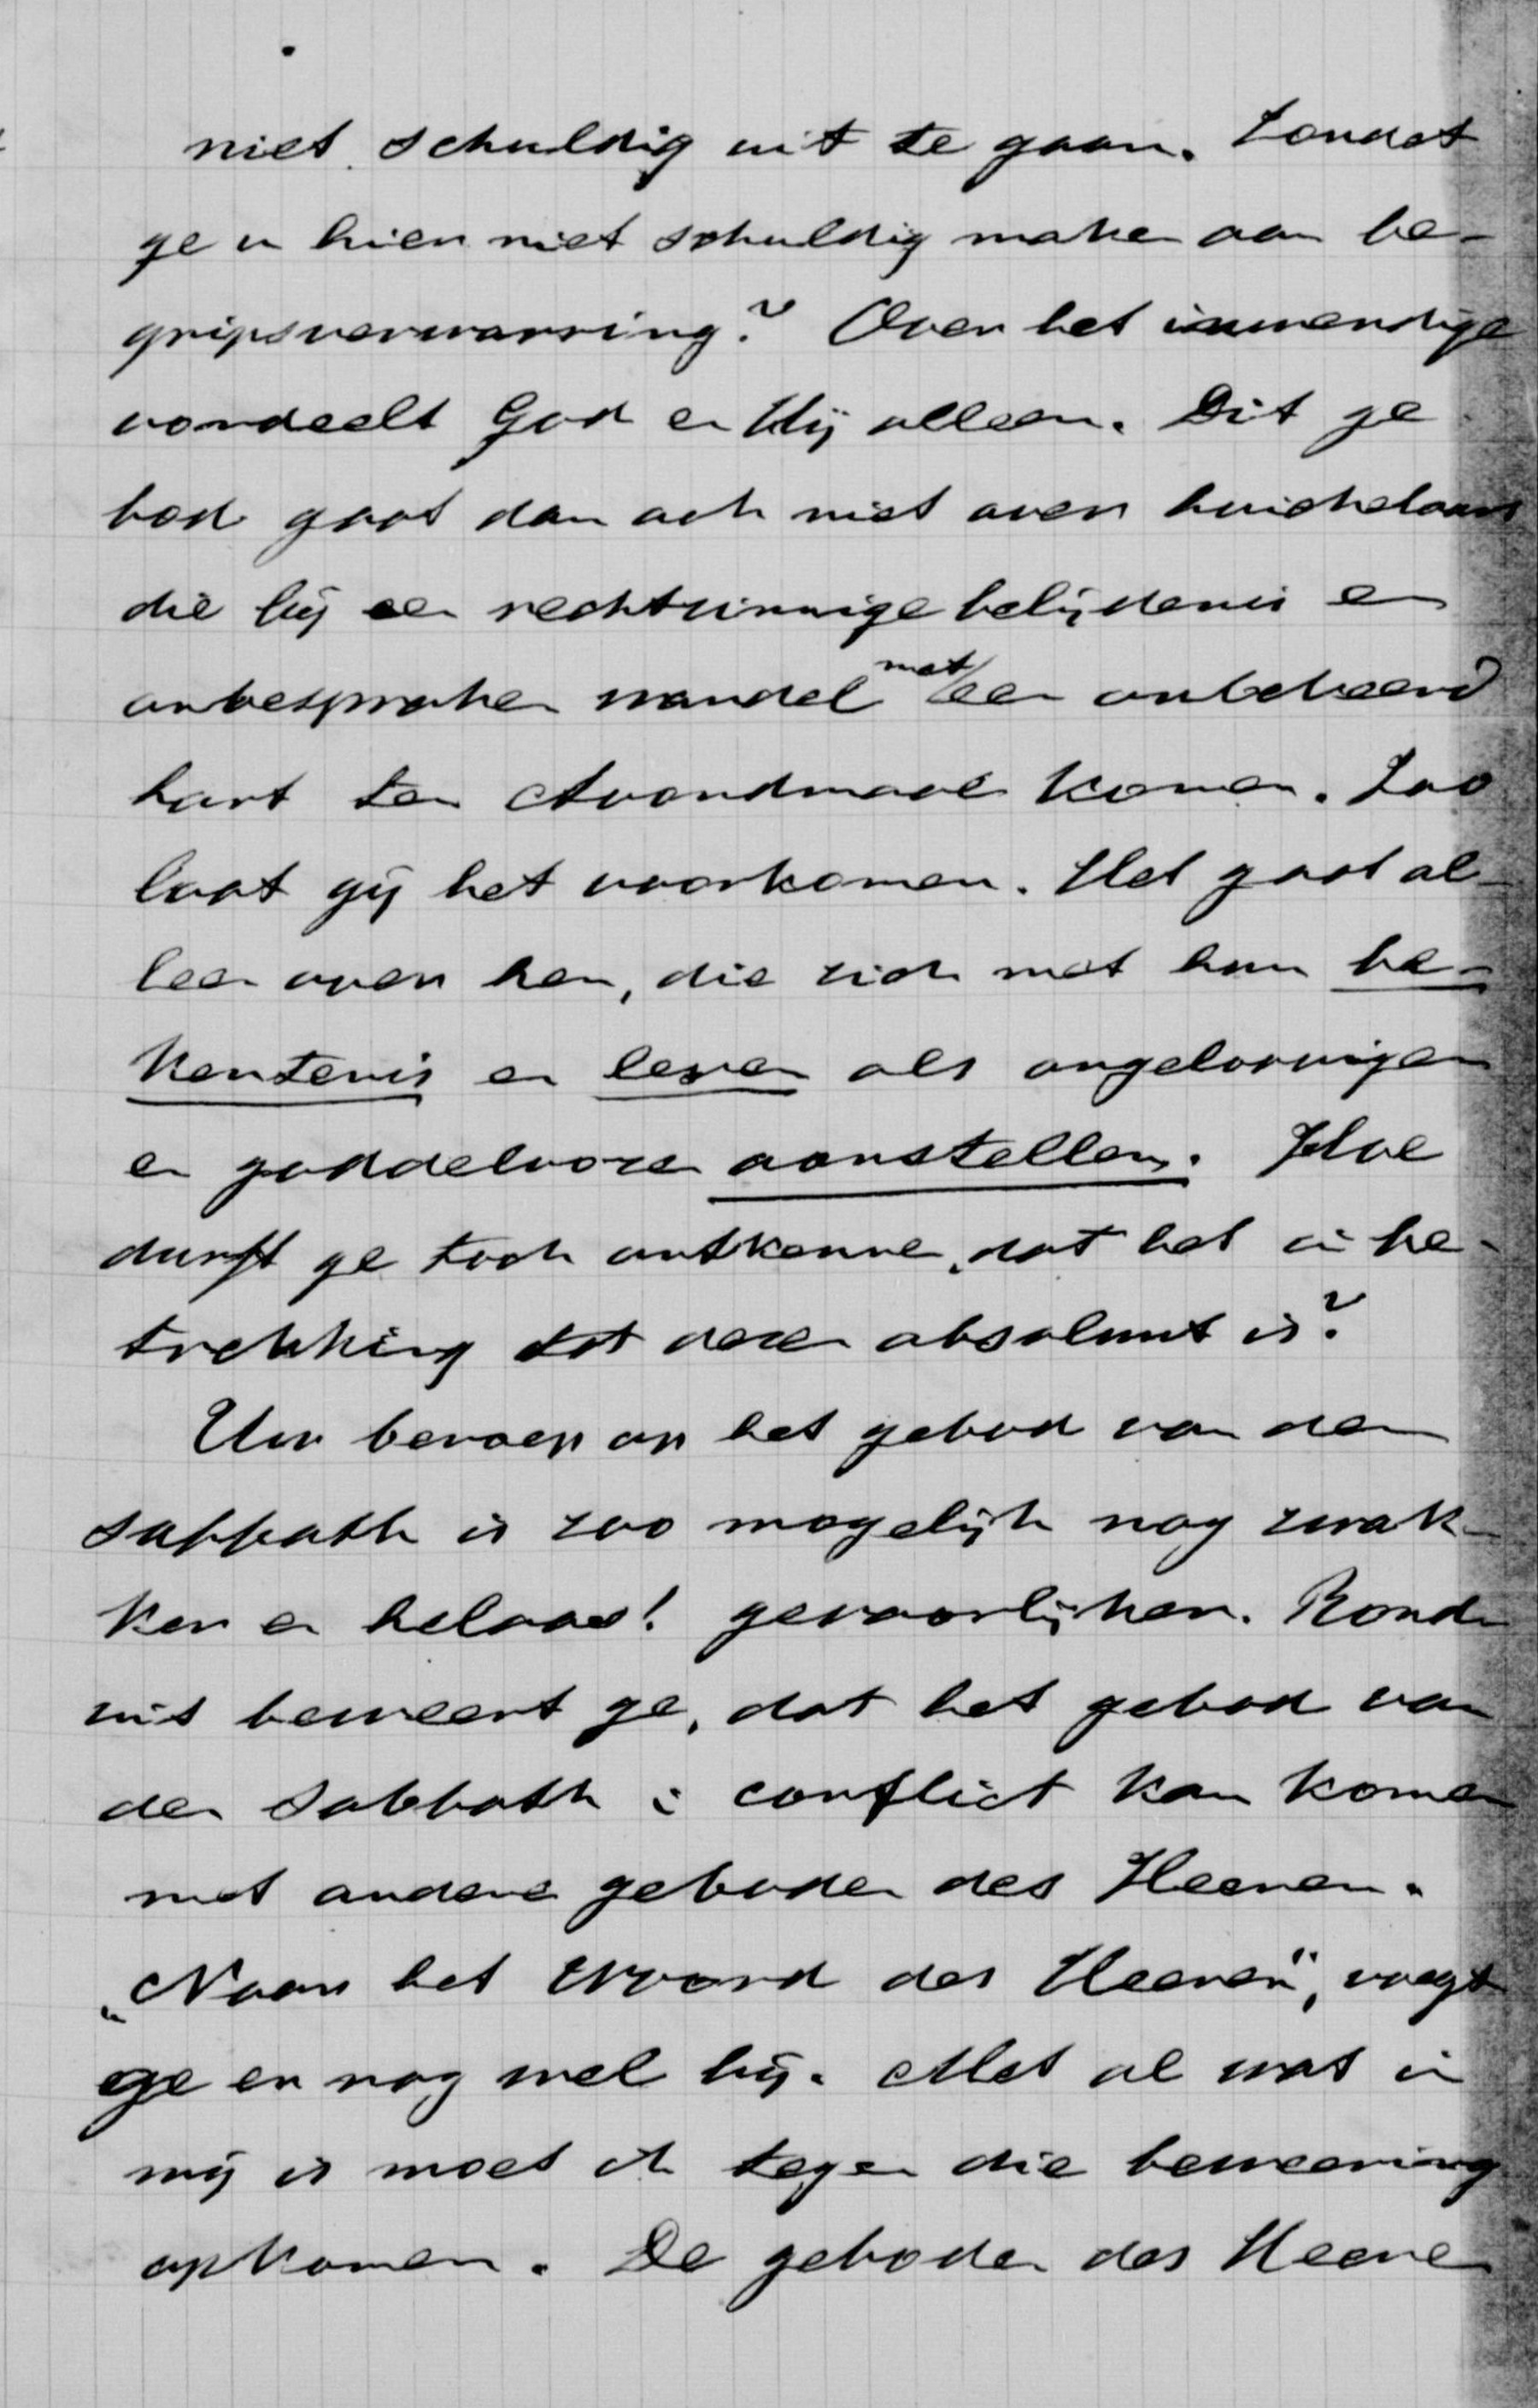 niet schuldig uit te gaan. Zoudt
ge u hier niet schuldig maken aan be-
gripsverwarring? Over het inwendige
oordeelt God en Hij alleen. Dit ge
bod gaat dan ook niet over huichelaars
die bij een rechtzinnige belijdenis en
onbesproken wandel met een onbekeerd
hart ten Avondmaal komen. Zoo
laat gij het voorkomen. Het gaat al-
leen over hen, die zich met hun be-
kentenis en leven als ongeloovigen
en goddeloozen aanstellen. Hoe
durft ge toch ontkennen, dat het in be-
trekking tot dezen absoluut is?
Uw beroep op het gebod van den
sabbath is zoo mogelijk nog zwak-
ker en helaas! gevaarlijker. Ronde
uit beweert ge, dat het gebod van
den sabbath in conflict kan komen
met andere geboden des Heeren.
„Naar het Woord des Heeren", voegt
ge er nog wel bij. Met al wat in
mij is moet ik tegen die bewering
opkomen. De geboden des Heeren